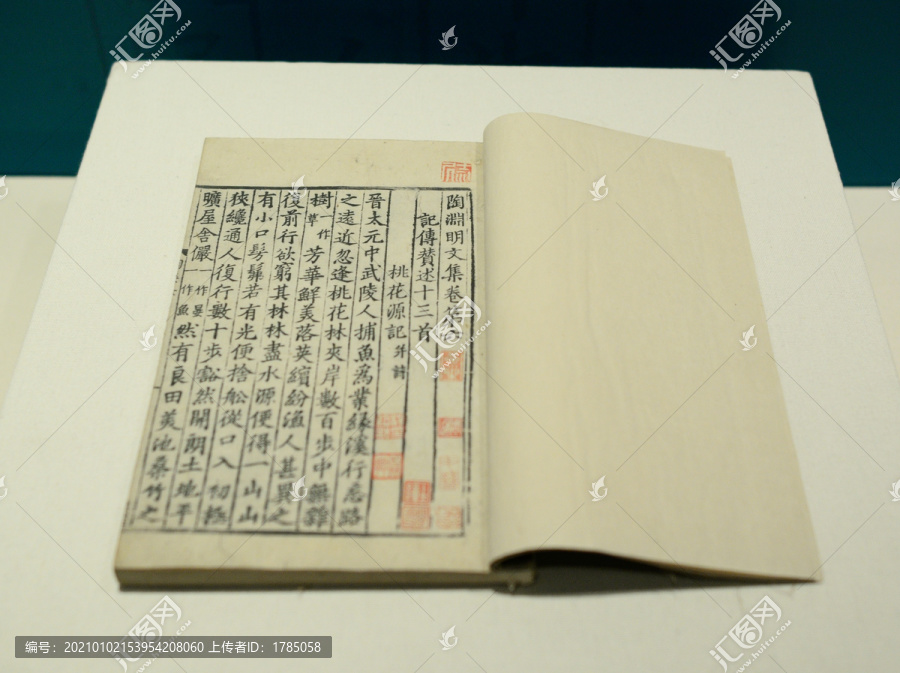 陶淵明文集卷第
記傳賛述十三首
桃花源記并詩
晉太元中武陵人捕魚為業緣溪行忘路
之遠近忽逢桃花林夾岸數百步中無雜
樹一作草芳華鮮美落英繽紛漁人甚異之
復前行欲窮其林林盡水源便得一山山
有小口髣髴若有光便捨舩從口入初極
狹纔通人復行數十步豁然開朗土地平
曠屋舍儼一作晏一作魚然有良田美池桑竹之
汇图网
www.huitu.com
汇图网
www.huitu.com
汇图网
www.huitu.com
汇图网
www.huitu.com
汇图网
www.huitu.com
编号：20210102153954208060 上传者ID：1785058